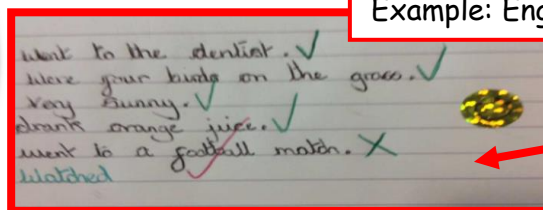 Example: Eng
went to the dentist. ✓
were four birds on the grass. ✓
very sunny. ✓
drank orange juice. ✓
went to a football match. ✗
Watched